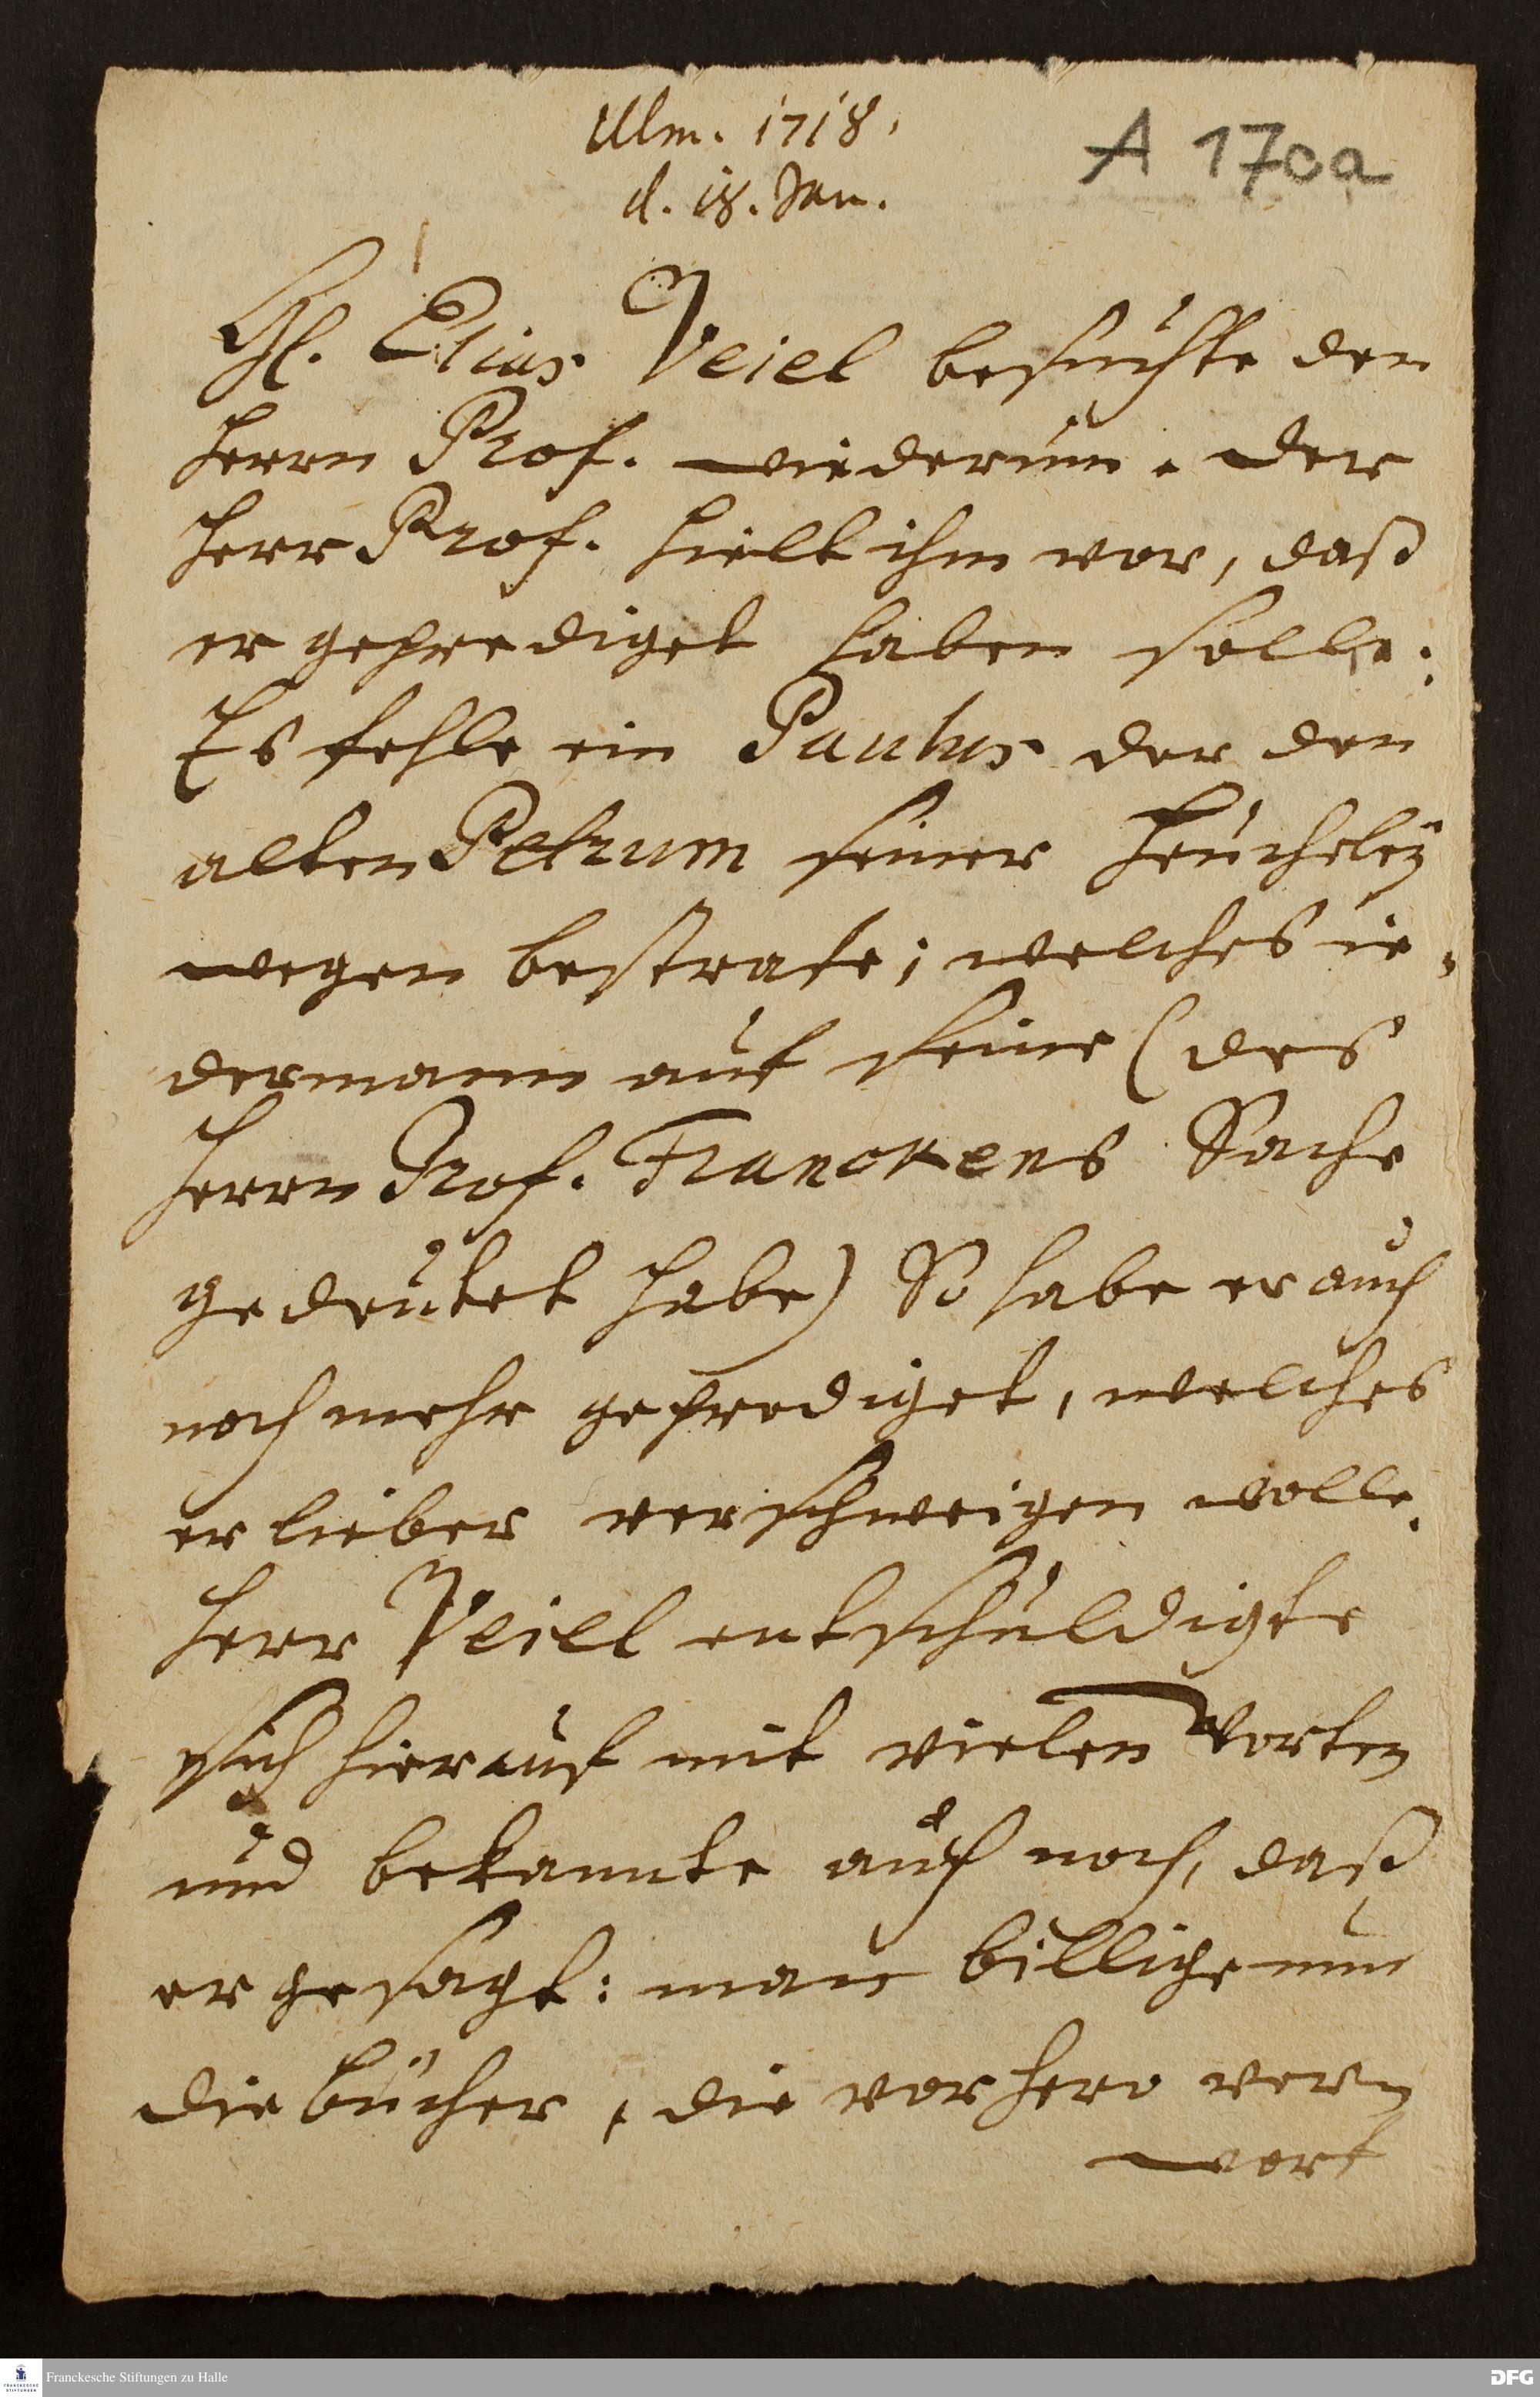 Ulm. 1718.
A 170a
d. 18. Jan.
H. Elias Veiel besuchte den
Herrn Prof. wiederum. der
Herr Prof. hielt ihm vor, daß
er geprediget haben solle:
Es fehle ein Paulus der den
alten Petrum seiner Heucheley
wegen bestrafe; welches ie-
dermann auf seine (des
Herrn Prof. Franckens Sache
gedeutet habe) So habe er auch
noch mehr geprediget, welches
er lieber verschweigen wolle.
Herr Veiel entschuldigte
sich hierauf mit vielen Worten
und bekannte auch noch, daß
er gesagt: man billige nun
die bücher, die vorhero ver-
worf
Franckesche Stiftungen zu Halle
DFG